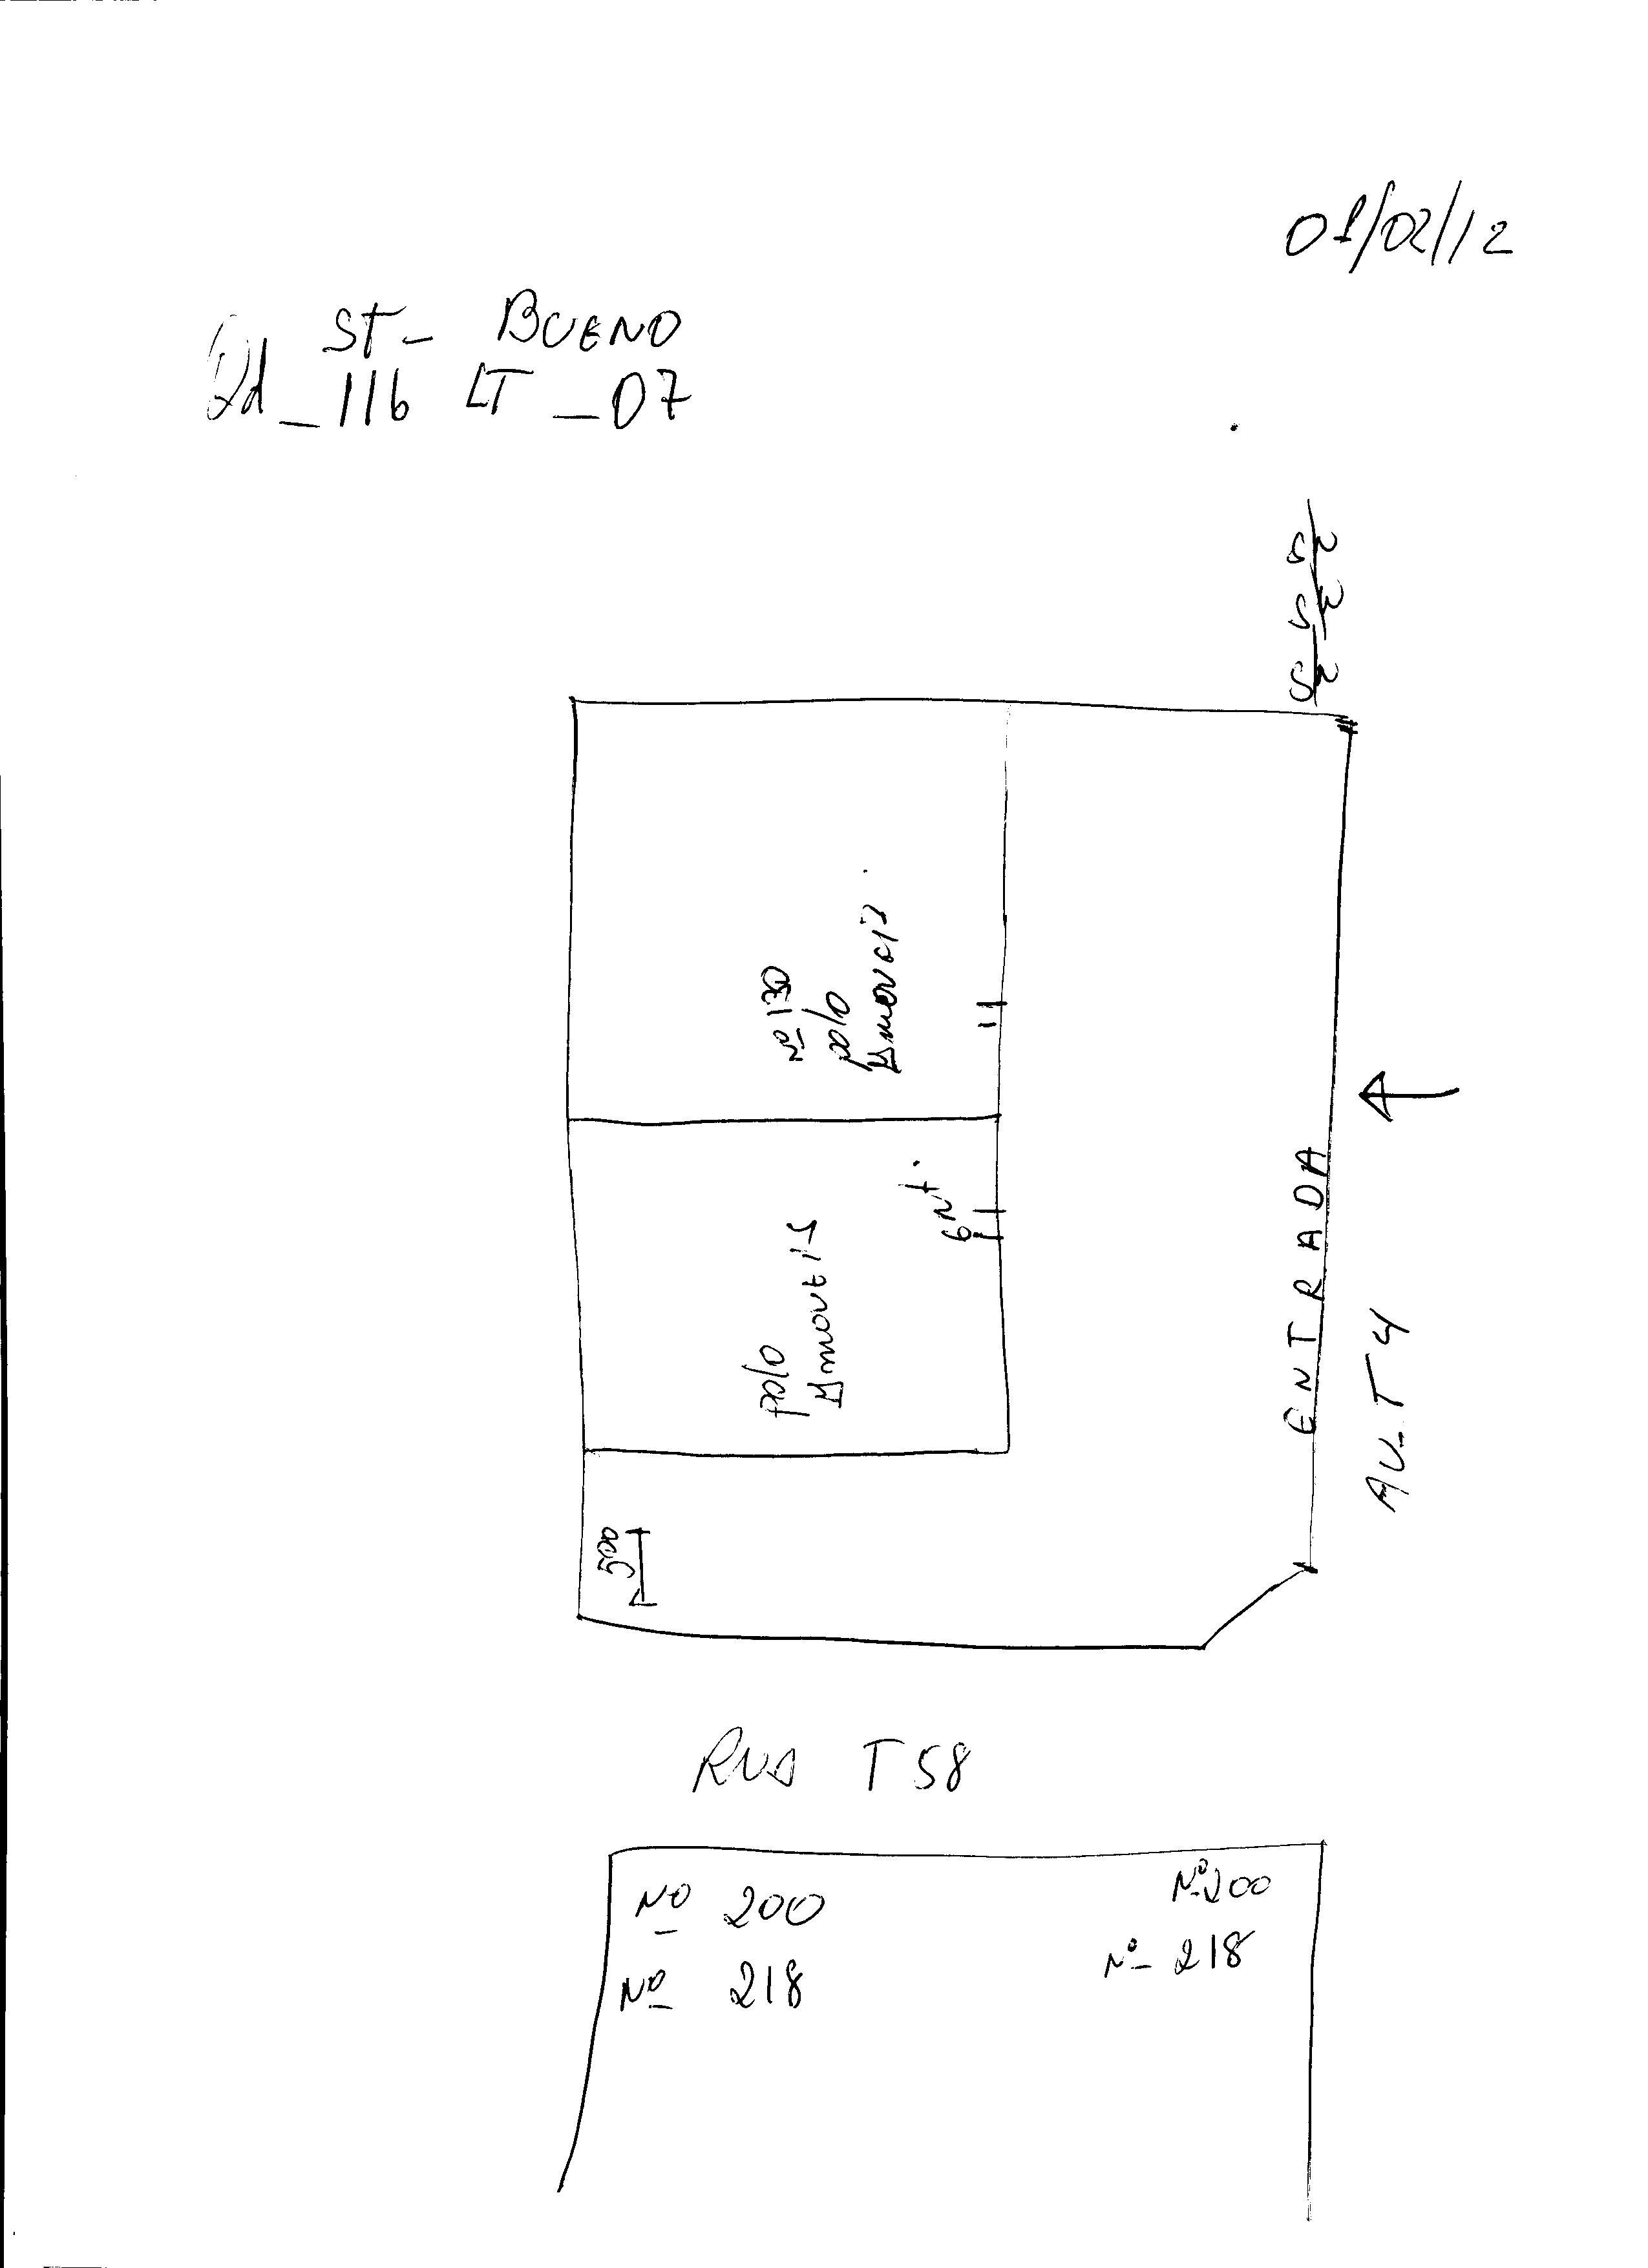 01/02/12
ST- BUENO
Qd_116 LT_07
Nº 130
polo
polo
500
ENTRADA
AV-T4
RUA T58
Nº 200
Nº 200
Nº 218
Nº 218